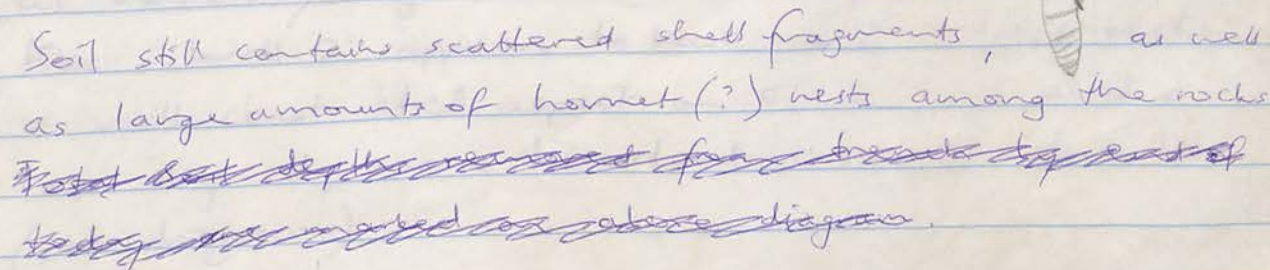 Soil still contains scattered shell fragments, as well
as large amounts of hornet (?) nests among the rocks
depths from trench top
today marked on above diagram.